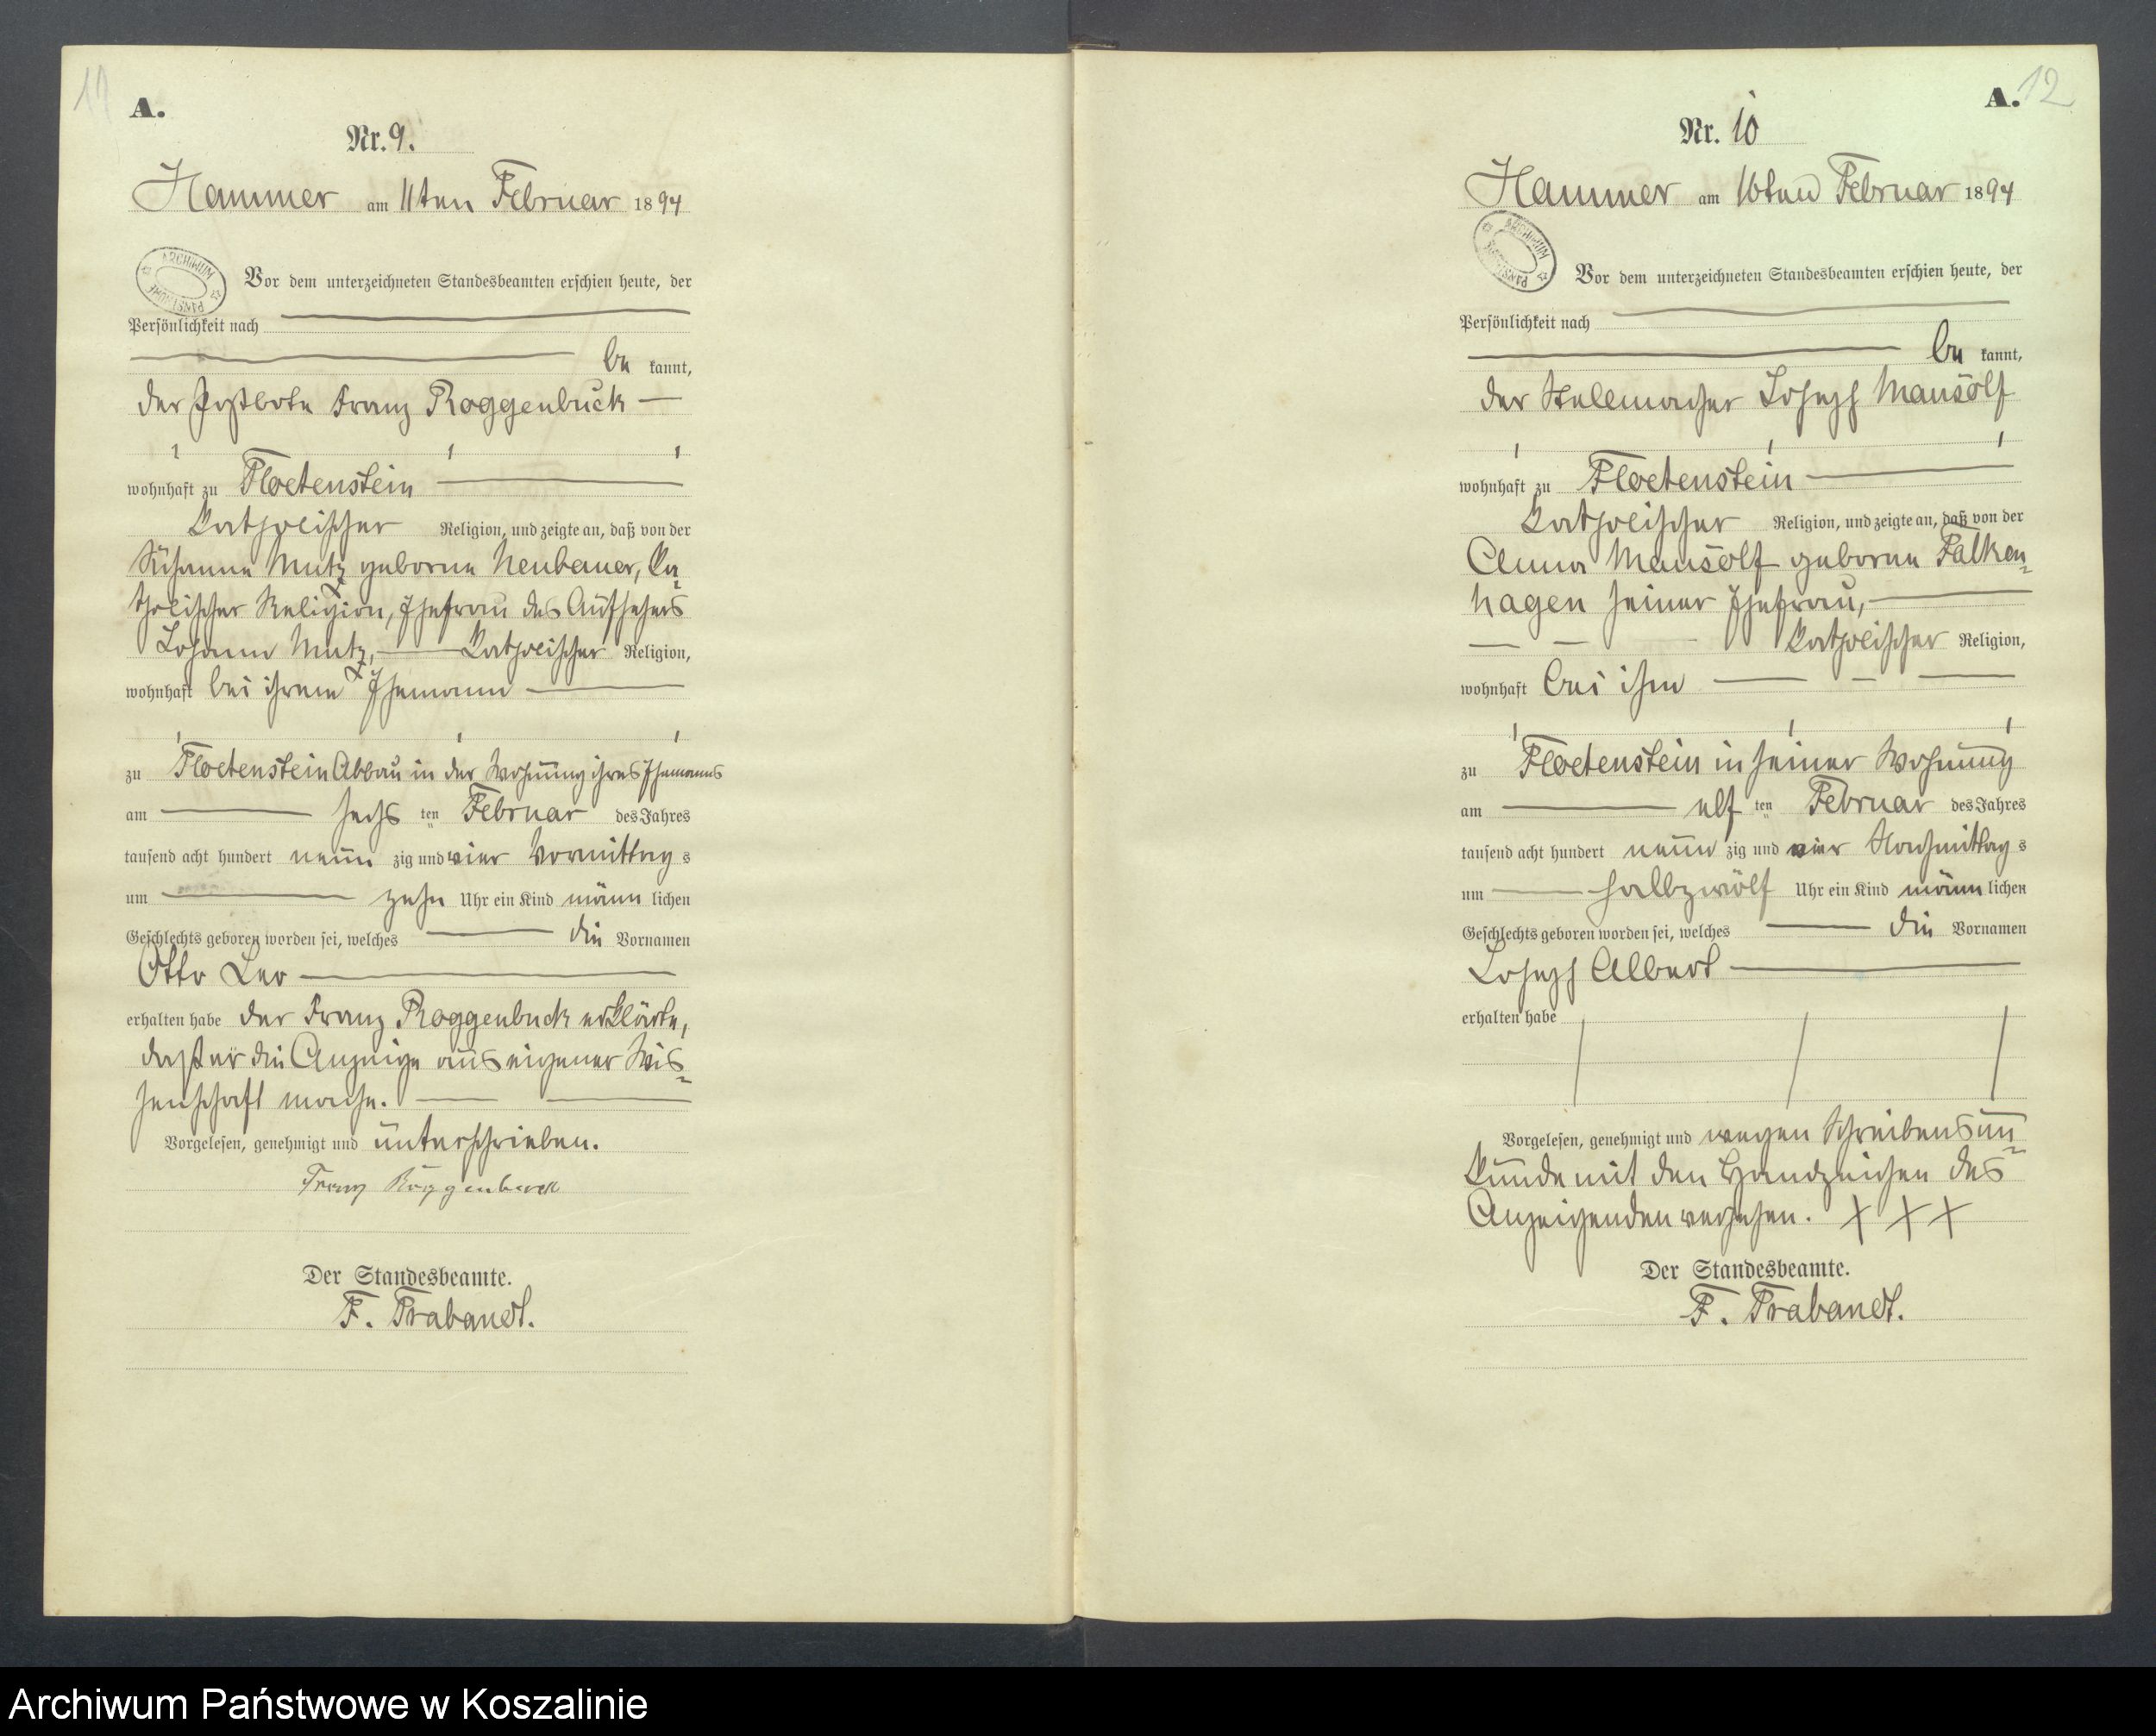 11
A.
Nr. 9.
Hammer am 11ten Februar 1894
ARCHIWUM PAŃSTWOWE
Vor dem unterzeichneten Standesbeamten erschien heute, der
Persönlichkeit nach
be kannt,
der Postbote Franz Roggenbuck
wohnhaft zu Floetenstein
katholischer Religion, und zeigte an, daß von der
Susanna Mutz geborne Neubauer, ka-
tholischer Religion, Ehefrau des Aufsehers
Johann Mutz, katholischer Religion,
wohnhaft bei ihrem Ehemann
zu Floetenstein Abbau in der Wohnung ihres Ehemanns
am sechs ten Februar des Jahres
tausend acht hundert neun zig und vier Vormittag s
um zehn Uhr ein Kind männ lichen
Geschlechts geboren worden sei, welches die Vornamen
Otto Leo
erhalten habe der Franz Roggenbuck erklärte,
daß er die Anzeige aus eigener Wis-
senschaft mache.
Vorgelesen, genehmigt und unterschrieben.
Franz Roggenbuck
Der Standesbeamte.
F. Trabandt.
12
A.
Nr. 10
Hammer am 16ten Februar 1894
ARCHIWUM PAŃSTWOWE
Vor dem unterzeichneten Standesbeamten erschien heute, der
Persönlichkeit nach
be kannt,
der Stellmacher Joseph Mausolf
wohnhaft zu Floetenstein
katholischer Religion, und zeigte an, daß von der
Anna Mausolf geborne Falken-
hagen seiner Ehefrau,
katholischer Religion,
wohnhaft bei ihm
zu Floetenstein in seiner Wohnung
am elf ten Februar des Jahres
tausend acht hundert neun zig und vier Nachmittag s
um halbzwölf Uhr ein Kind männ lichen
Geschlechts geboren worden sei, welches die Vornamen
Joseph Albert
erhalten habe
Vorgelesen, genehmigt und wegen Schreibensun-
kunde mit den Handzeichen des
Anzeigenden versehen. X X X
Der Standesbeamte.
F. Trabandt.
Archiwum Państwowe w Koszalinie